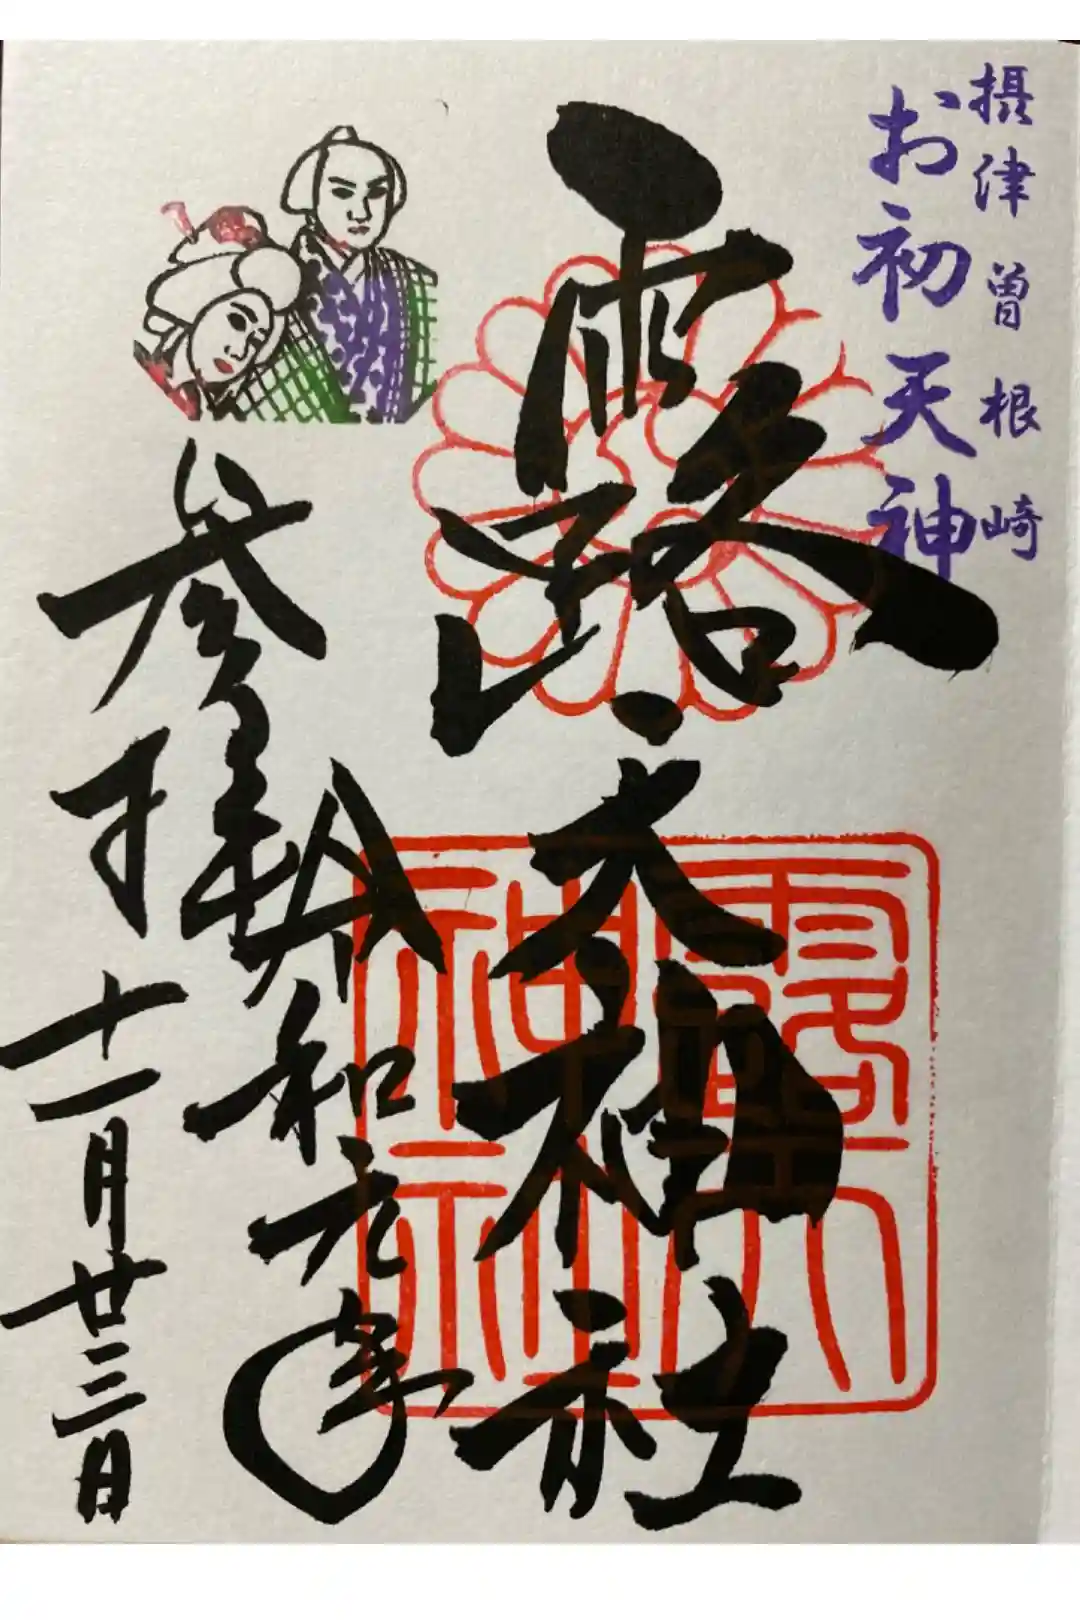 摂津曽根崎
お初天神
露天神社
令和元年
十一月廿三日
参拝
露天
神社